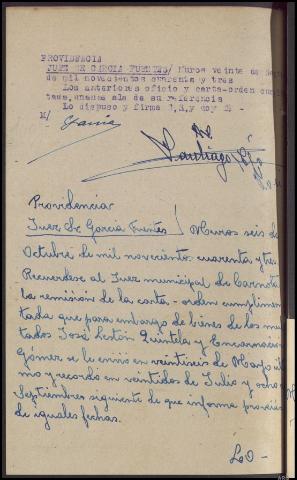 PROVIDENCIA
JUEZ DE GARCIA FUENTES/ Muros veinte de
de mil novecientos cuarenta y tres
Los anteriores oficio y carta-orden
tada, unanse ala de su referencia
Lo dispuso y firma S,S, y doy fé -
M/
Garcia
Santiago
Providencia
Juez Sr Garcia Fuentes / Muros seis de
Octubre de mil novecientos cuarenta y tres
Recuerdese al Juez municipal de Carnota
la remisión de la carta-orden cumplimen-
tada que para embargo de bienes de los mul-
tados José Lestón Quintela y Encarnación
Gómez se le envió en veintiseis de Marzo últi-
mo y recordó en veintidos de Julio y ocho
Septiembre siguiente de que informa providencia
de iguales fechas.
Lo -